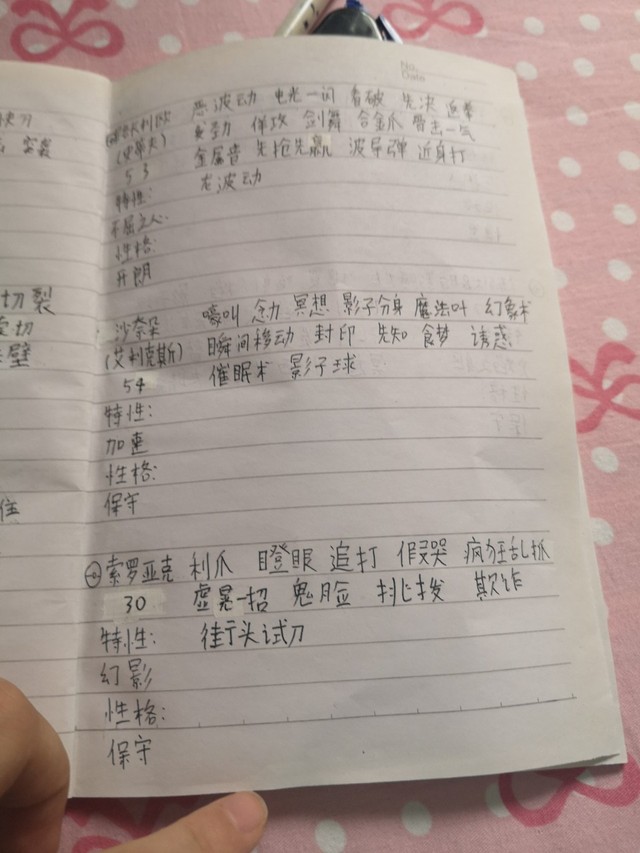 No.
Date
恶波动 电光一闪 看破 先决 追
(史蒂夫) 发劲 佯攻 剑舞 合金爪 骨击一气
53 金属音 先抢先赢 波导弹 近身打
特性: 龙波动
不屈之心:
性格:
开朗
沙奈朵 嚎叫 念力 冥想 影子分身 魔法叶 幻象术
(艾利克斯) 瞬间移动 封印 先知 食梦 诱惑
54 催眠术 影子球
特性:
加速
性格:
保守
索罗亚克 利爪 瞪眼 追打 假哭 疯狂乱抓
30 虚晃一招 鬼脸 挑拨 欺诈
特性: 街头试刀
幻影
性格:
保守
切裂
切
壁
住